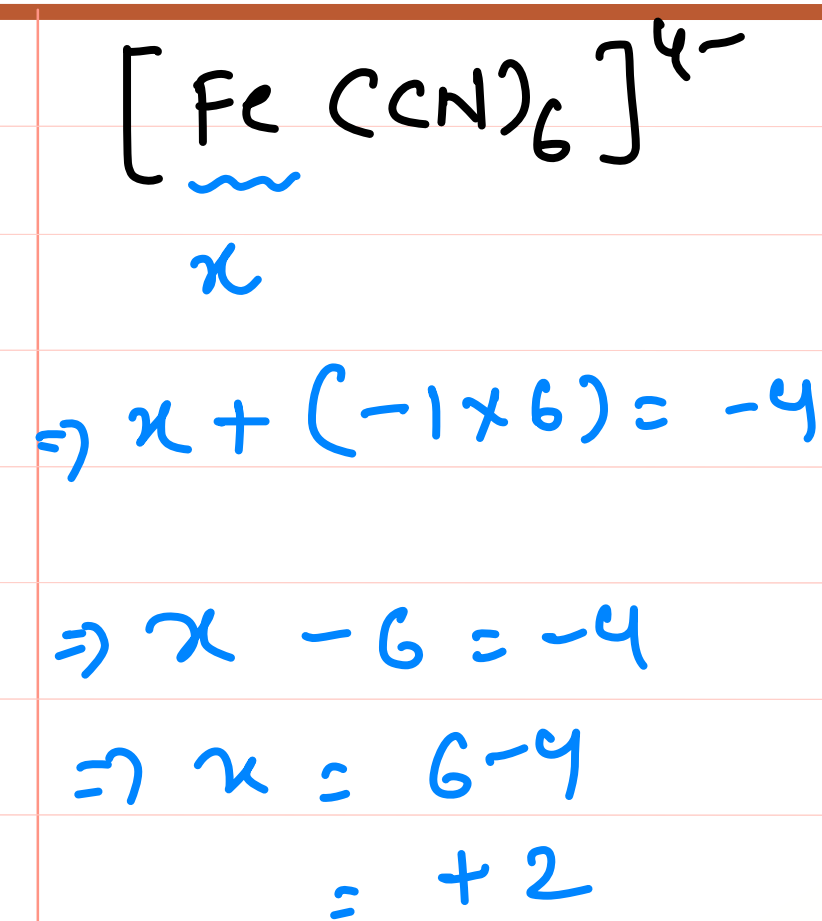 [Fe(CN)₆]⁴⁻
x
⇒ x + (-1×6) = -4
⇒ x - 6 = -4
⇒ x = 6-4
= +2